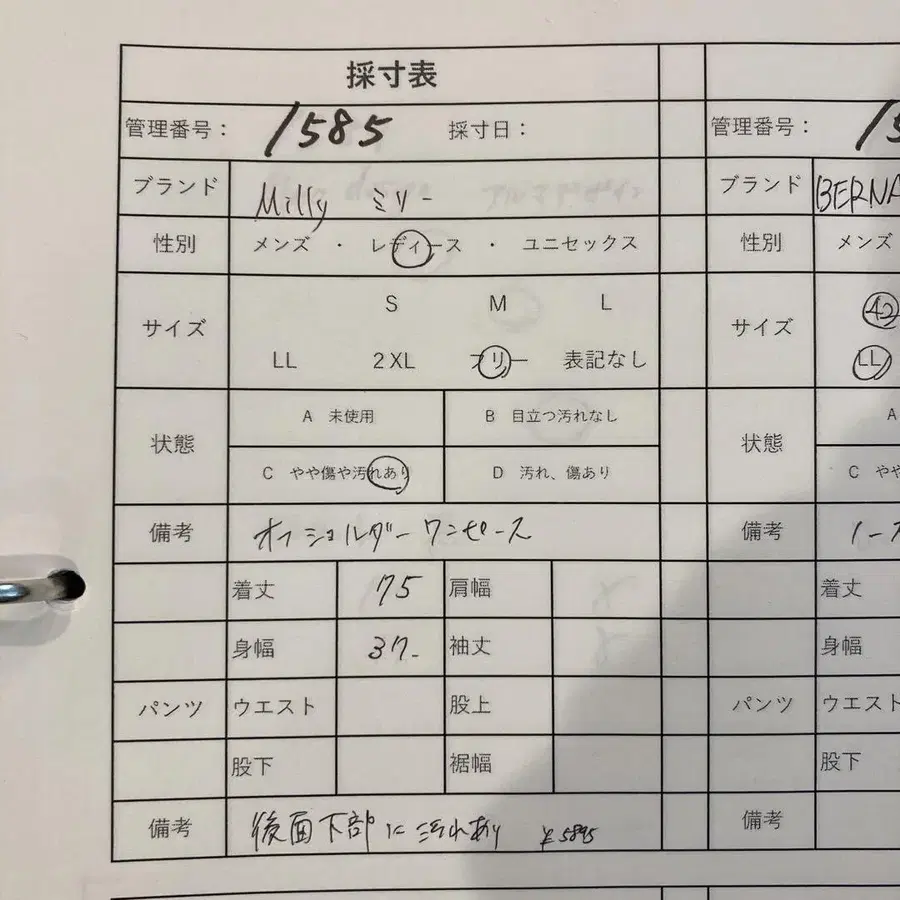 採寸表
管理番号： 1585 採寸日：
ブランド Milly ミリー
性別 メンズ ・ レディース ・ ユニセックス
サイズ S M L
LL 2XL フリー 表記なし
状態 A 未使用 B 目立つ汚れなし
C やや傷や汚れあり D 汚れ、傷あり
備考 オフショルダーワンピース
着丈 75 肩幅
身幅 37 袖丈
パンツ ウエスト 股上
股下 裾幅
備考 後面下部に汚れあり ¥5895
管理番号：
ブランド BERNA
性別 メンズ
サイズ 42
LL
状態 A
C やや
備考
着丈
身幅
パンツ ウエスト
股下
備考